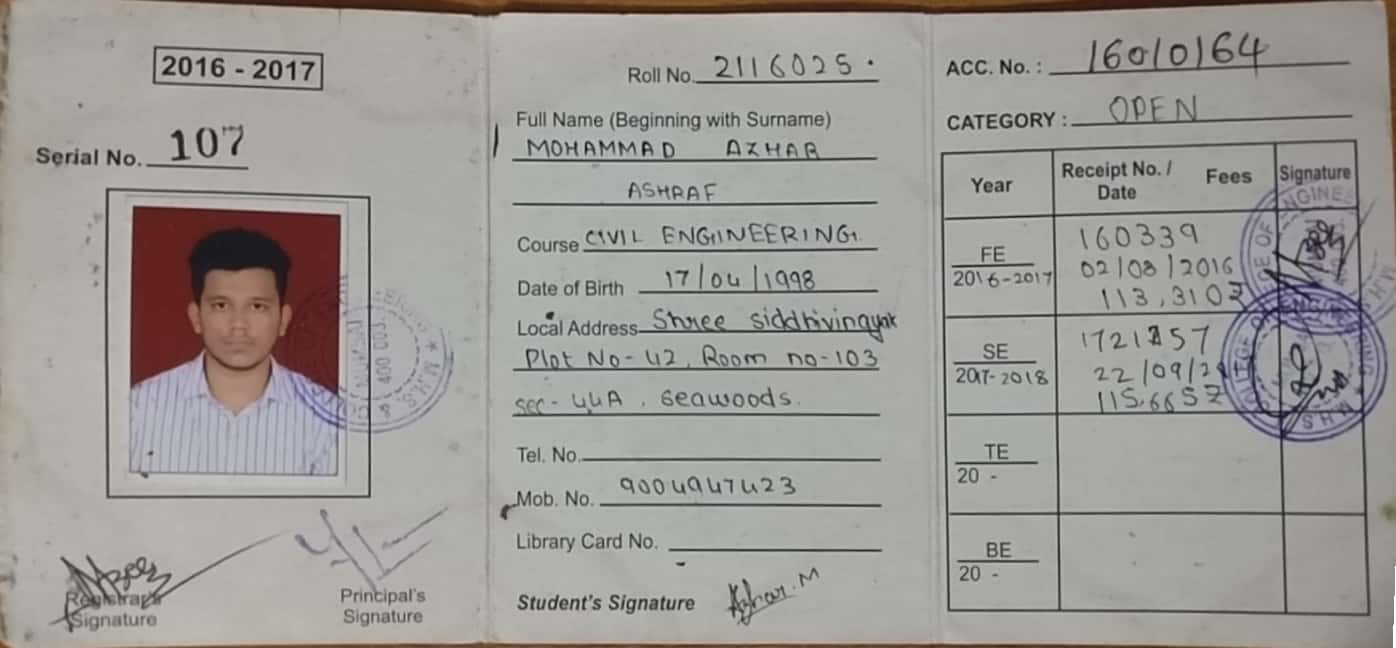 2016 - 2017
Serial No. 107
Registrar's
Signature
Principal's
Signature
Roll No. 2116025.
Full Name (Beginning with Surname)
MOHAMMAD AZHAR
ASHRAF
Course CIVIL ENGINEERING
Date of Birth 17/04/1998
Local Address Shree siddhivinayak
Plot No-42, Room no-103
sec-44A, seawoods.
Tel. No.
Mob. No. 9004947423
Library Card No.
Student's Signature Azhar.M
ACC. No. : 16010164
CATEGORY : OPEN
Year Receipt No. / Date Fees Signature
FE
2016-2017
160339
02/08/2016
SE
2017-2018
22/09/
TE
20 -
BE
20 -